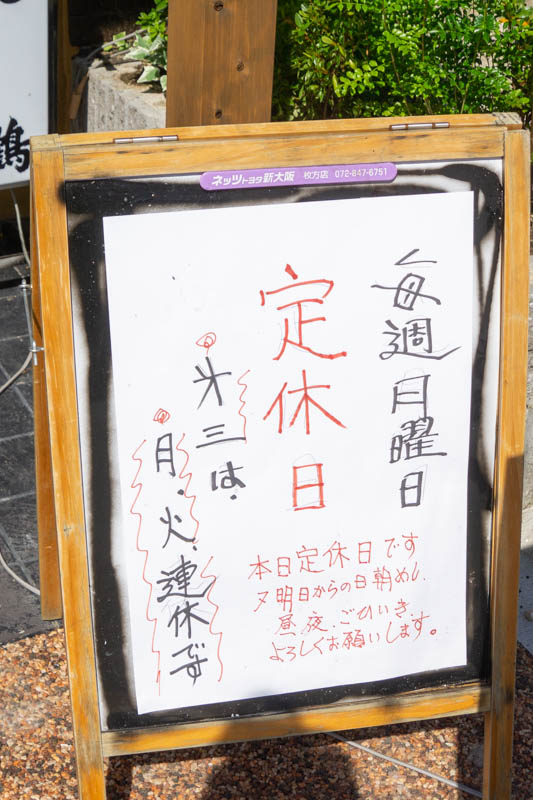 鶴
ネッツトヨタ新大阪 枚方店 072-847-6751
毎週月曜日
定休日
本日定休日です
又明日からの日朝めし、
昼、夜、ごひいき
よろしくお願いします。
◎ 才三は、
◎ 月、火、連休です